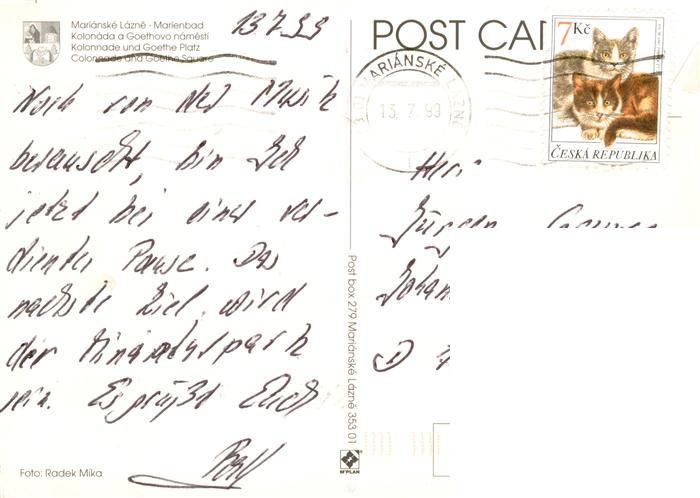 Mariánské Lázně - Marienbad
Kolonáda a Goethovo náměstí
Kolonnade und Goethe Platz
Colonnade and Goethe Square
13.7.99
Noch von der Musik
berauscht, bin ich
jetzt bei einer ver-
dienten Pause. Das
nächste Ziel wird
der Miniaturpark
sein. Es grüßt Euch
Foto: Radek Mika
Post box 279 Mariánské Lázně 353 01
M*PLAN
POST CAR
MARIÁNSKÉ LÁZNĚ
13. 7. 99
7 Kč
ČESKÁ REPUBLIKA
Herr
Jürgen
Johan
D